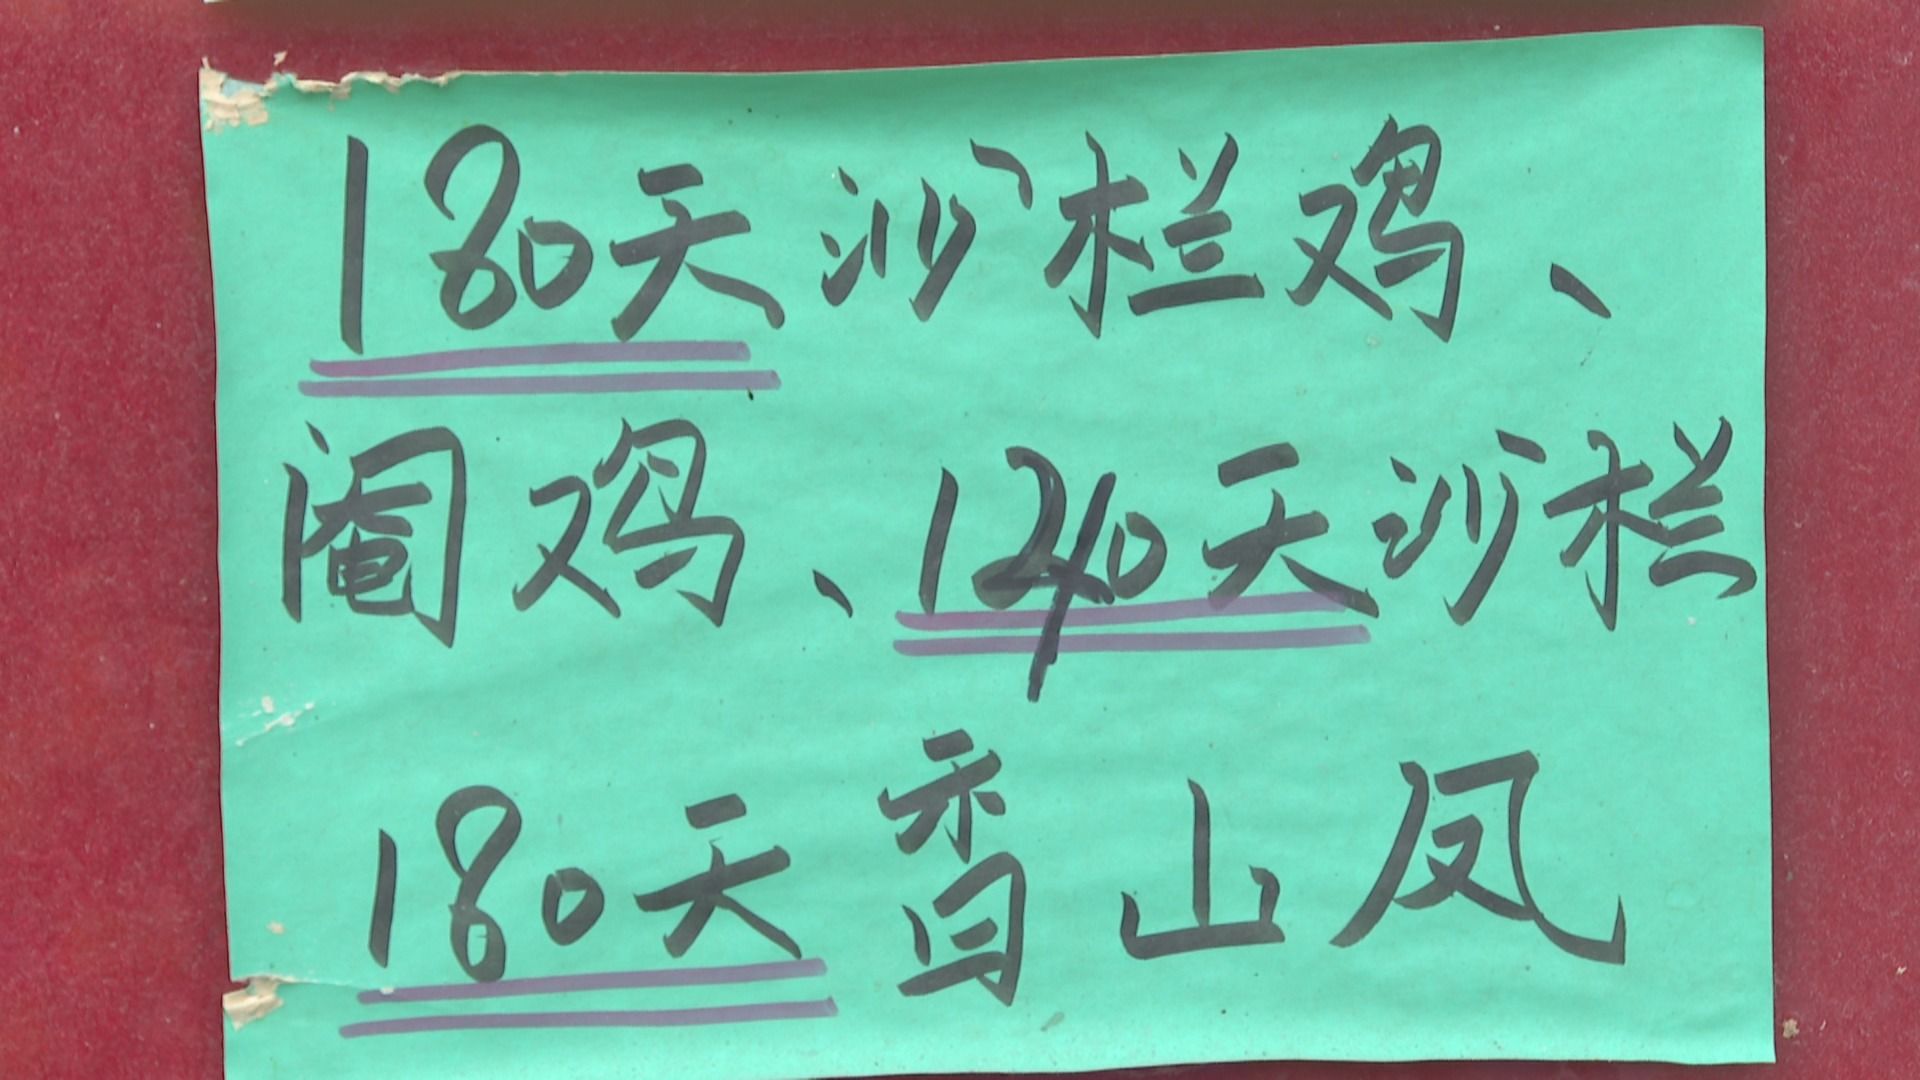 180天沙栏鸡、
阉鸡、140天沙栏
180天香山凤